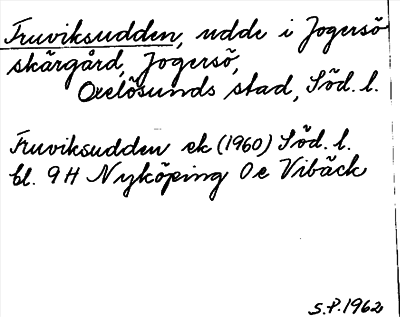 Fruviksudden, udde i Jogersö
skärgård, Jogersö,
Oxelösunds stad, Söd. l.
Fruviksudden ek (1960) Söd. l.
bl. 9H Nyköping Oe Vibäck
S.P. 1962